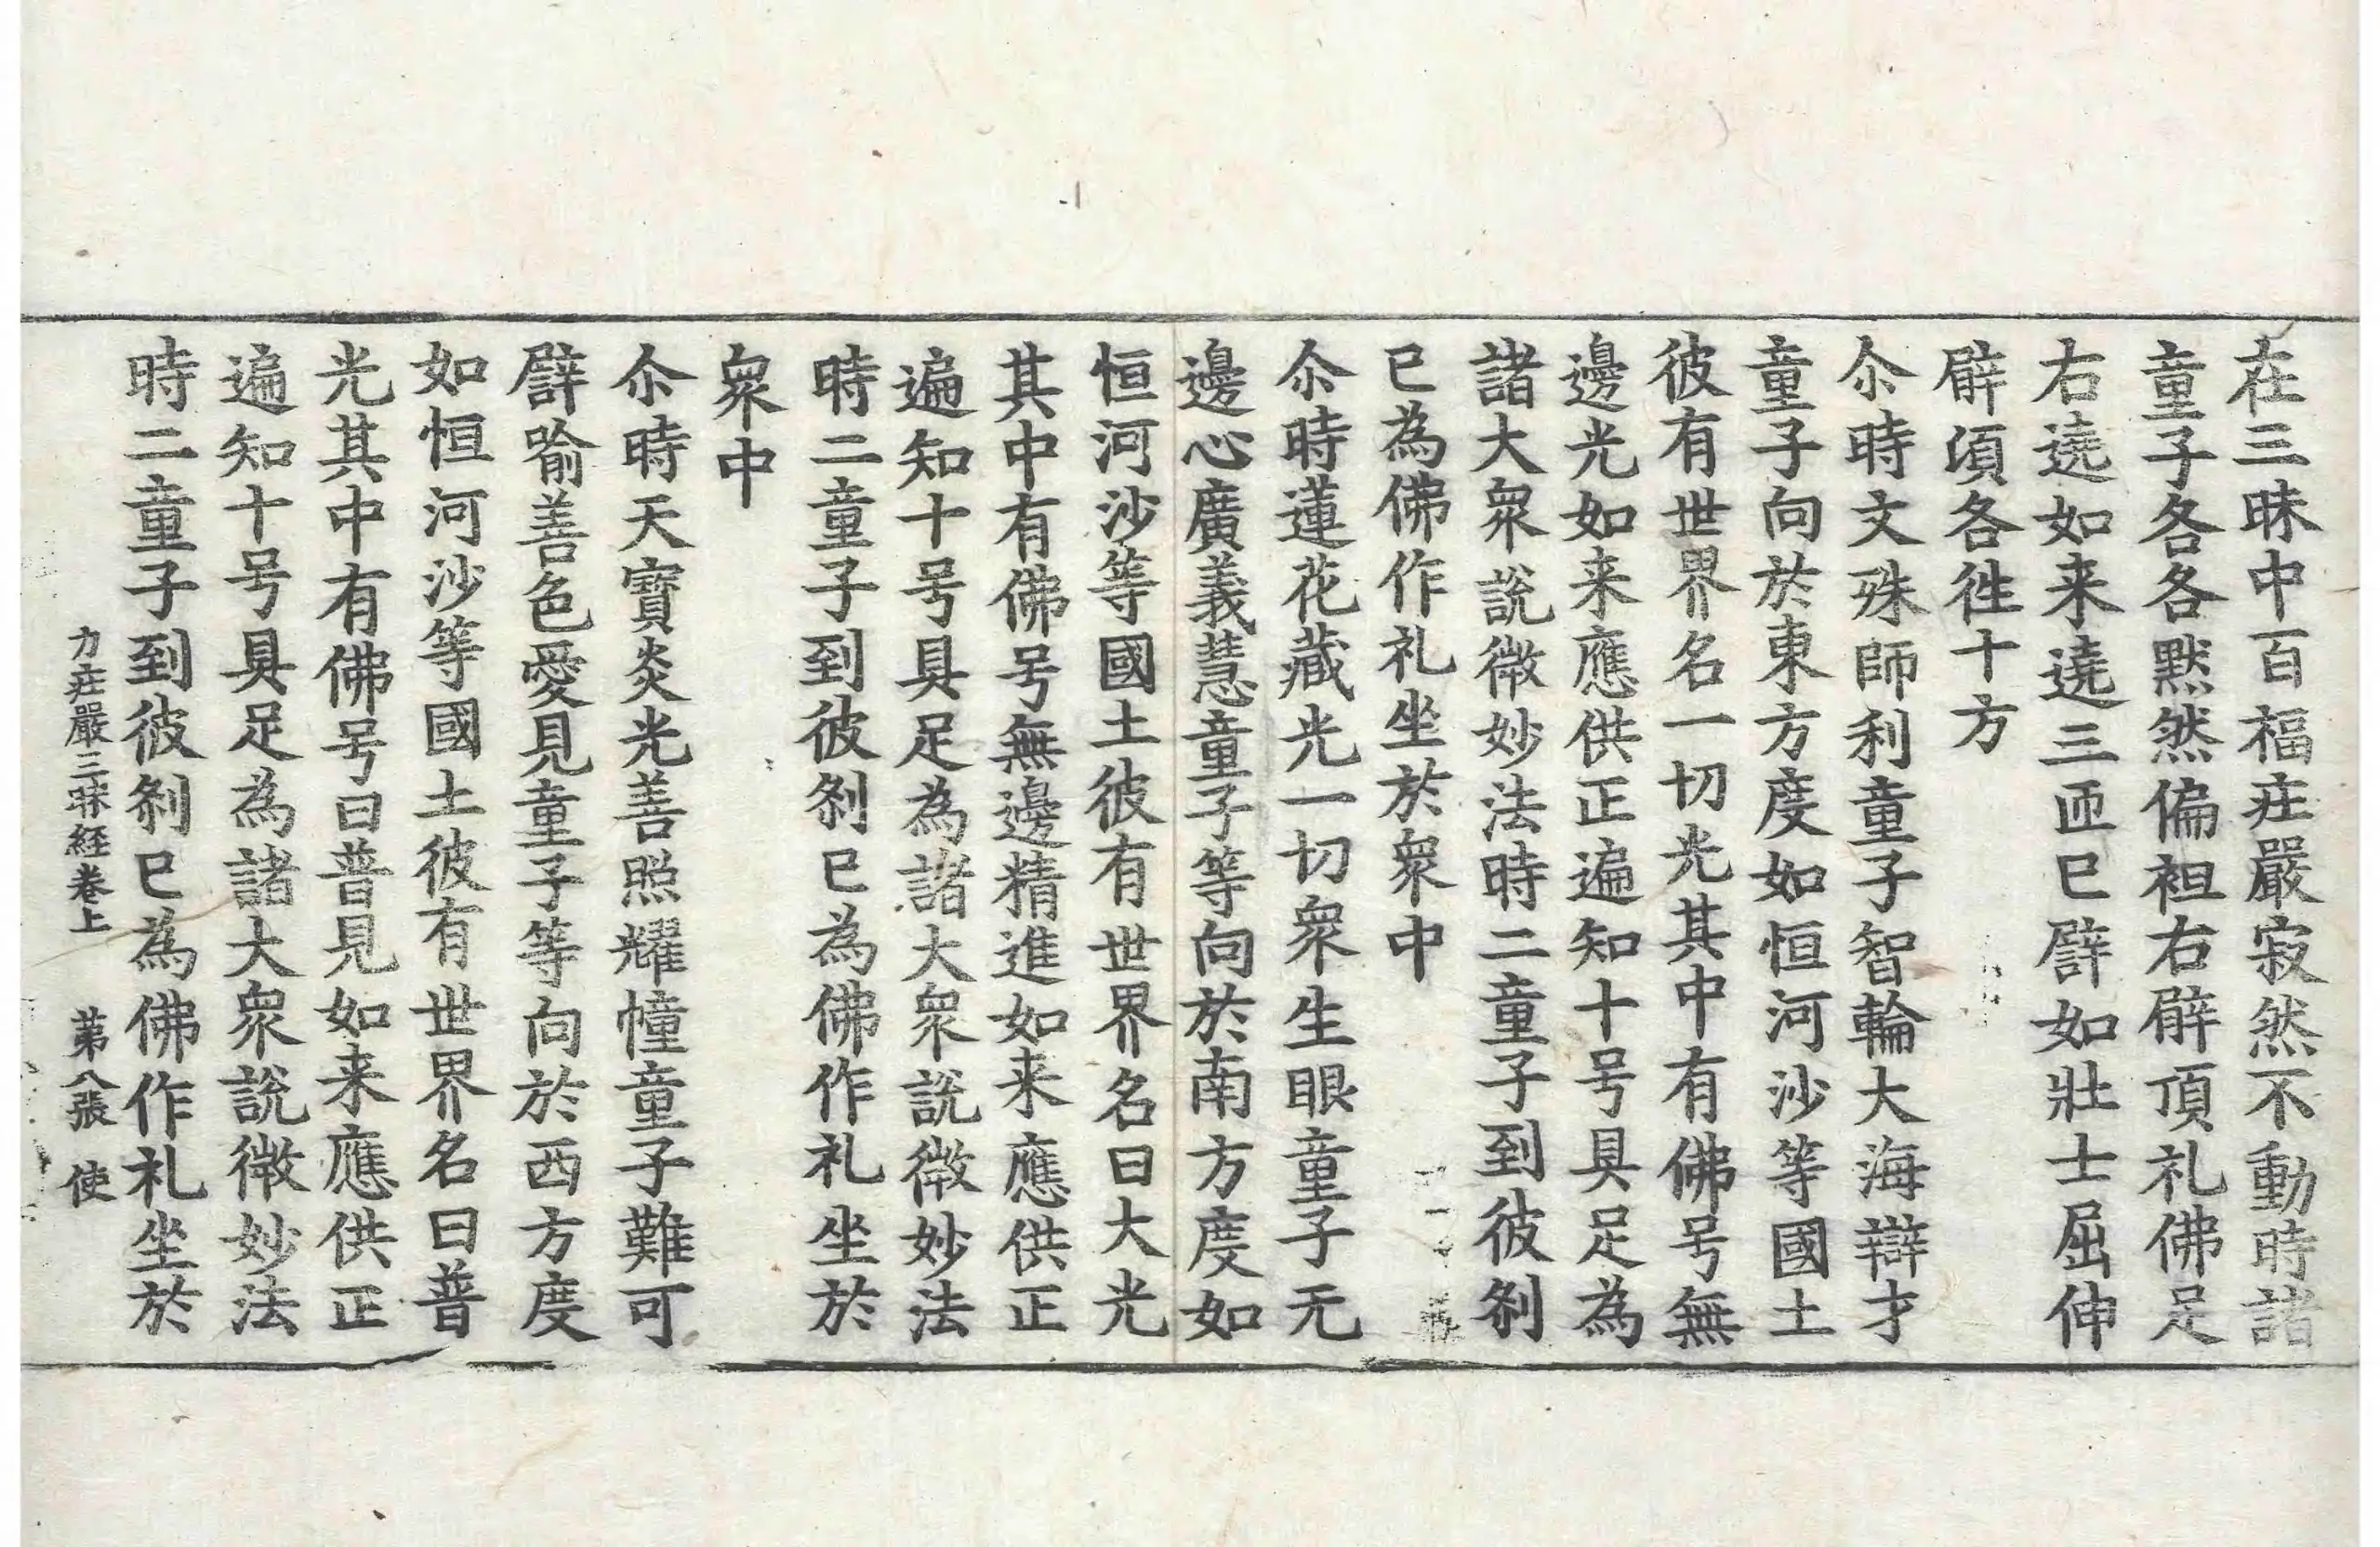 在三昧中百福疘嚴寂然不動時諸
童子各各黙然偏袒右臂頂礼佛足
右遶如来遶三匝已譬如壯士屈伸
臂頃各徃十方
尒時文殊師利童子智輪大海辯才
童子向於東方度如恒河沙等國土
彼有世界名一切光其中有佛号無
邊光如来應供正遍知十号具足為
諸大衆說微妙法時二童子到彼剎
已為佛作礼坐於衆中
尒時蓮花藏光一切衆生眼童子无
邊心廣義慧童子等向於南方度如
恒河沙等國土彼有世界名曰大光
其中有佛号無邊精進如来應供正
遍知十号具足為諸大衆說微妙法
時二童子到彼剎已為佛作礼坐於
衆中
尒時天寶炎光善照耀幢童子難可
譬喻善色愛見童子等向於西方度
如恒河沙等國土彼有世界名曰普
光其中有佛号曰普見如来應供正
遍知十号具足為諸大衆說微妙法
時二童子到彼剎已為佛作礼坐於
力疘嚴三昧経卷上 第八張 使